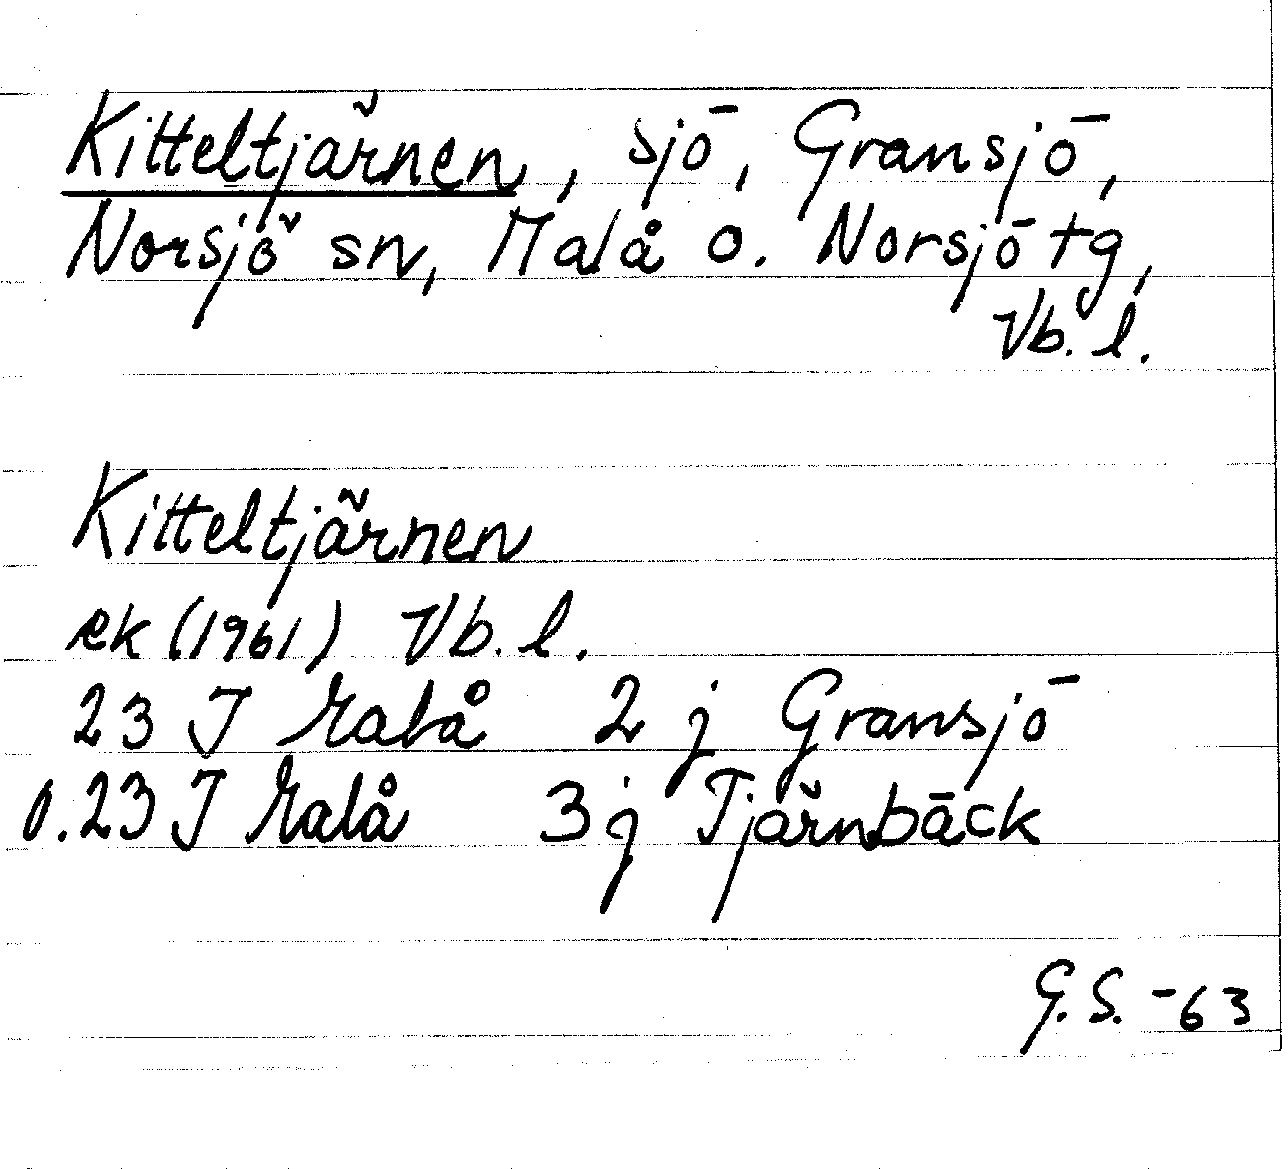 Kitteltjärnen, sjö, Gransjö,
Norsjö sn, Malå o. Norsjö tg,
Vb. l.
Kitteltjärnen
ek (1961) Vb. l.
23 J Malå 2 j Gransjö
o. 23 J Malå 3 j Tjärnbäck
G. S. -63